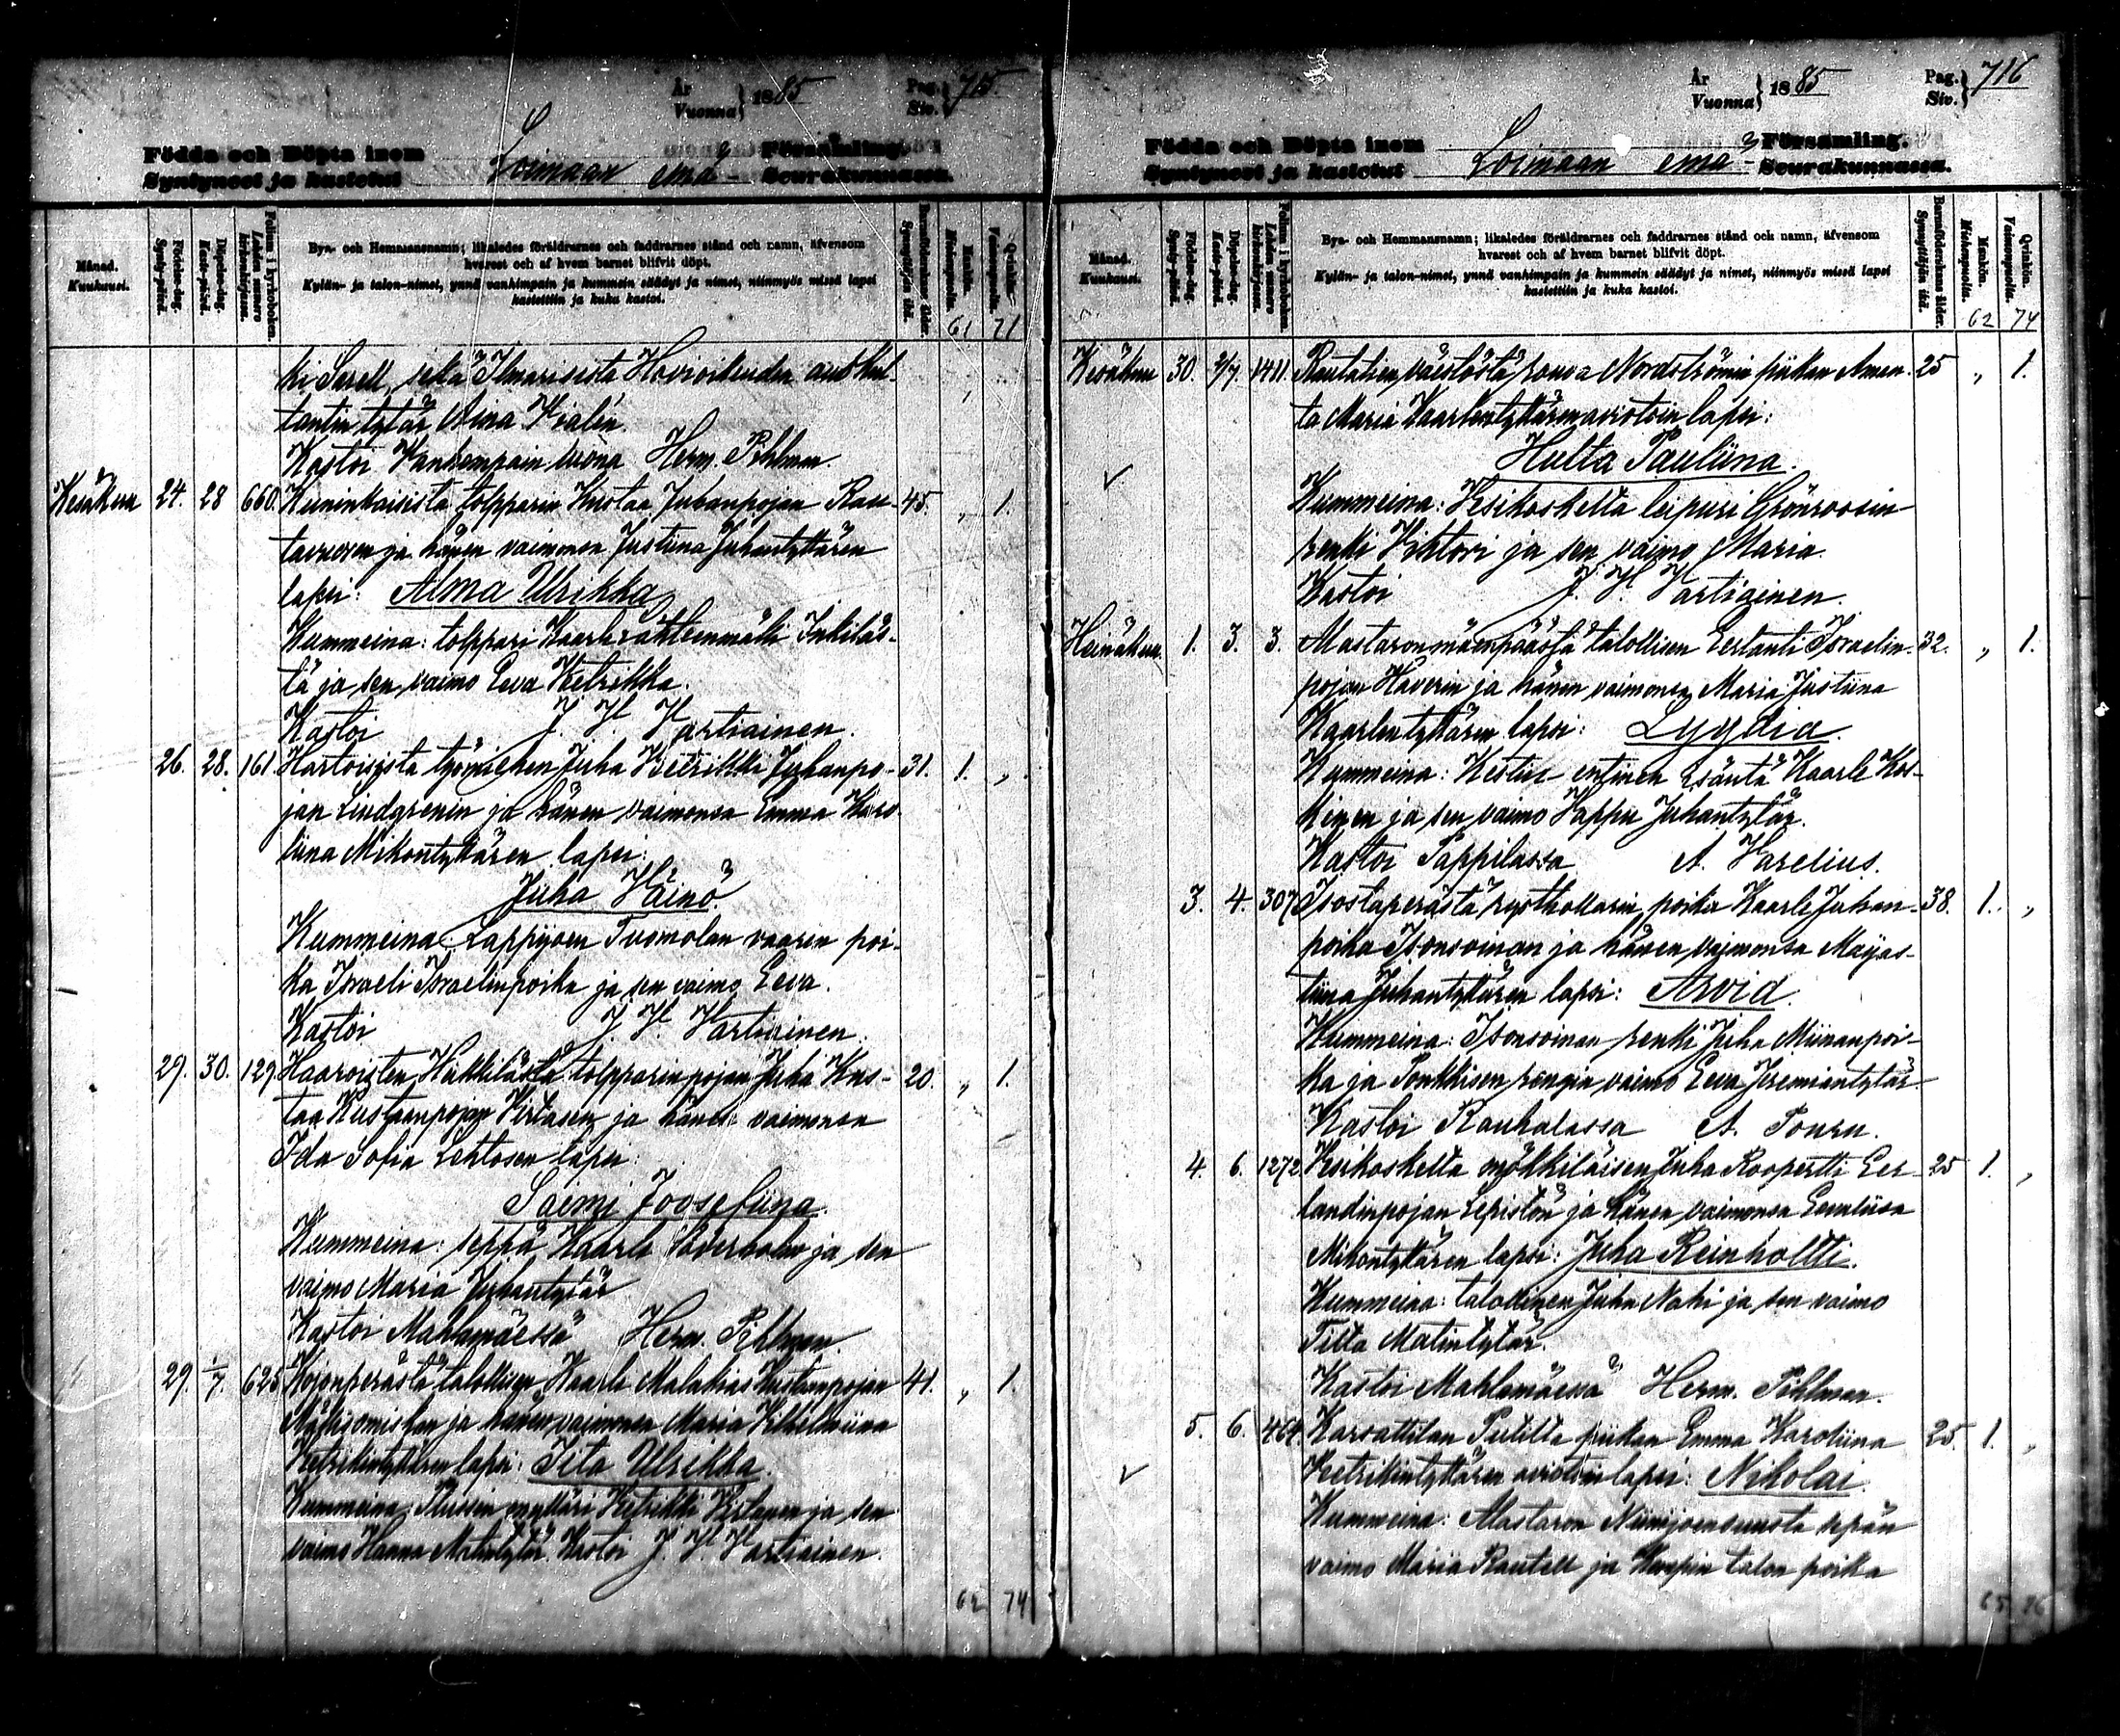 År Vuonna } 1885 Pag. Siv. } 715.
Födda och Döpta inom Församling.
Syntyneet ja kastetut Loimaan emä- Seurakunnassa.
Månad. Kuukausi.
Födelse-dag. Synty-päivä.
Döpelse-dag. Kaste-päivä.
Folium i kyrkoboken. Lehden numero kirkonkirjassa.
Bya- och Hemmansnamn; likaledes föräldrarnes och faddrarnes stånd och namn, äfvensom
hvarest och af hvem barnet blifvit döpt.
Kylän- ja talon-nimet, ynnä vanhimpain ja kummein säädyt ja nimet, niinmyös missä lapsi
kastettiin ja kuka kastoi.
Barnaföderskans ålder. Synnyttäjän ikä.
Mankön. Miehenpuolta.
Qvinkön. Vaimonpuolta.
61 71
ki Sarell, sekä Ilmarisista Hovioikeuden auskul-
tantin tytär Aina
Kastoi Vanhempain luona Herm. Pihlman.
Kesäkuu 24. 28 660. Kuninkaisista tolpparin Kustaa Juhanpojan Rau- 45. „ 1.
ja hänen vaimonsa Justina Juhantyttären
lapsi: Alma Ulrikka
Kummeina: tolppari Kaarle Inkiläs-
tä ja sen vaimo Eeva Vetrikka.
Kastoi J. H. Vartiainen.
26. 28. 161 Hartoisista työmiehen Juha Vetrikki Juhanpo- 31. 1. „
jan Lindgrenin ja hänen vaimonsa Emma Karo-
liina Mikontyttären lapsi:
Juha Väinö.
Kummeina: Lappijoen Tuomolan vaarin poi-
ka Israeli Israelinpoika ja sen vaimo Eeva.
Kastoi J. H. Vartiainen.
29. 30. 129 Haaroisten tolpparin pojan Juha Kus- 20. „ 1.
taa Kustaanpojan Virtasen ja hänen vaimonsa
Ida Sofia Lehtosen lapsi:
Saimi Joosefiina.
Kummeina: seppä Kaarle ja sen
vaimo Maria Juhantytär
Kastoi Mahlamäessä Herm. Pihlman.
29. 1/7. 625 Kojonperästä talollisen Kaarle Malakias Kustaanpojan 41. „ 1.
ja hänen vaimonsa Maria Vilhelmiina
Vetrikintyttären lapsi: Tita Ulrikka.
Kummeina: mylläri Vetrikki Virtanen ja sen
vaimo Hanna Matintytär. Kastoi J. H. Vartiainen.
62 74
År Vuonna } 1885 Pag. Siv. } 716
Födda och Döpta inom Församling.
Syntyneet ja kastetut Loimaan emä- Seurakunnassa.
Månad. Kuukausi.
Födelse-dag. Synty-päivä.
Döpelse-dag. Kaste-päivä.
Folium i kyrkoboken. Lehden numero kirkonkirjassa.
Bya- och Hemmansnamn; likaledes föräldrarnes och faddrarnes stånd och namn, äfvensom
hvarest och af hvem barnet blifvit döpt.
Kylän- ja talon-nimet, ynnä vanhimpain ja kummein säädyt ja nimet, niinmyös missä lapsi
kastettiin ja kuka kastoi.
Barnaföderskans ålder. Synnyttäjän ikä.
Mankön. Miehenpuolta.
Qvinkön. Vaimonpuolta.
62 74
Kesäkuu 30. 2/7. 1411. Rautatien väestöstä rouva Nordströmin piikan Aman- 25 „ 1.
ta Maria Kaarlentyttären aviotoin lapsi:
Hulta Pauliina.
Kummeina: Vesikoskelta leipuri Grönroosin
renki Vihtori ja sen vaimo Maria.
Kastoi J. H. Vartiainen.
Heinäkuu 1. 3. 3. talollisen Eerlanti Israelin- 32. „ 1.
pojan Haverin ja hänen vaimonsa Maria Justiina
Kaarlentyttären lapsi: Lyydia.
Kummeina: entinen isäntä Kaarle Kos-
kinen ja sen vaimo Vappu Juhantytär.
Kastoi Pappilassa A. Varelius.
3. 4. 307 Isostaperästä rusthollarin poika Kaarle Juhan- 38. 1. „
poika Isonsoinan ja hänen vaimonsa Maijas-
tiina Juhantyttären lapsi: Arvid.
Kummeina: Isonsoinan renki Juha Miinanpoi-
ka ja Ponkkisen rengin vaimo Eeva Jeremiantytär
Kastoi Rauhalassa A. Touru.
4. 6. 1272 Vesikoskelta mökkiläisen Juha Roopertti Eer- 25 1. „
landinpojan Lepistön ja hänen vaimonsa Eevaliisa
Mikontyttären lapsi: Juha Reinholtti.
Kummeina: talollinen Juha Nahi ja sen vaimo
Tilta Matintytär.
Kastoi Mahlamäessä Herm. Pihlman.
5. 6. 464. Karsattilan piikan Emma Karoliina 25. 1. „
Vetrikintyttären avioton lapsi: Nikolai.
Kummeina: Alastaron Niinijoensuusta sepän
vaimo Maria Rautell ja talon poika
65 76